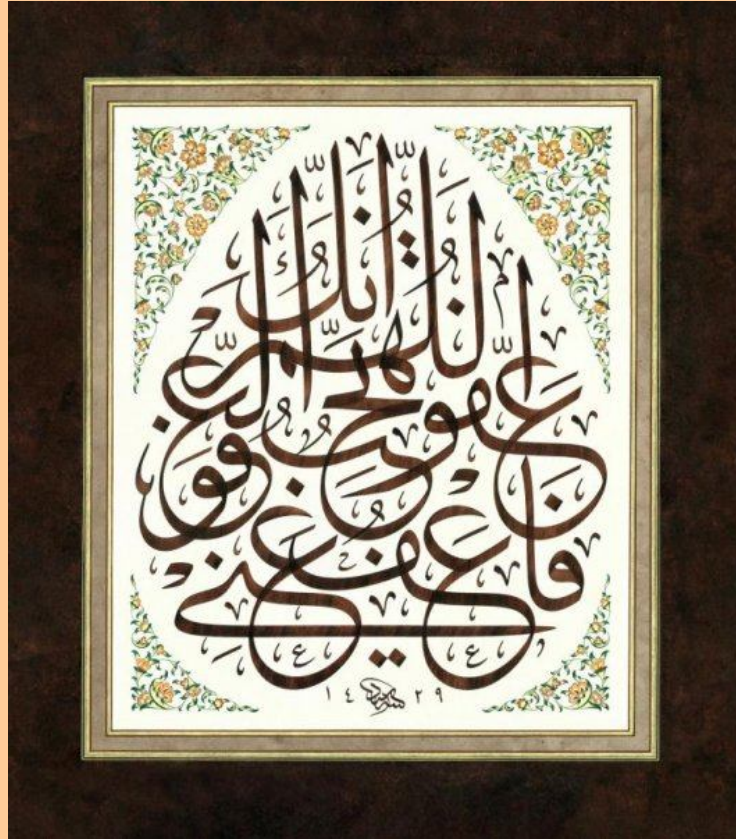 اللّٰهُمَّ اِنَّكَ عَفُوٌّ تُحِبُّ الْعَفْوَ فَاعْفُ عَنِّي
١٤٢٩